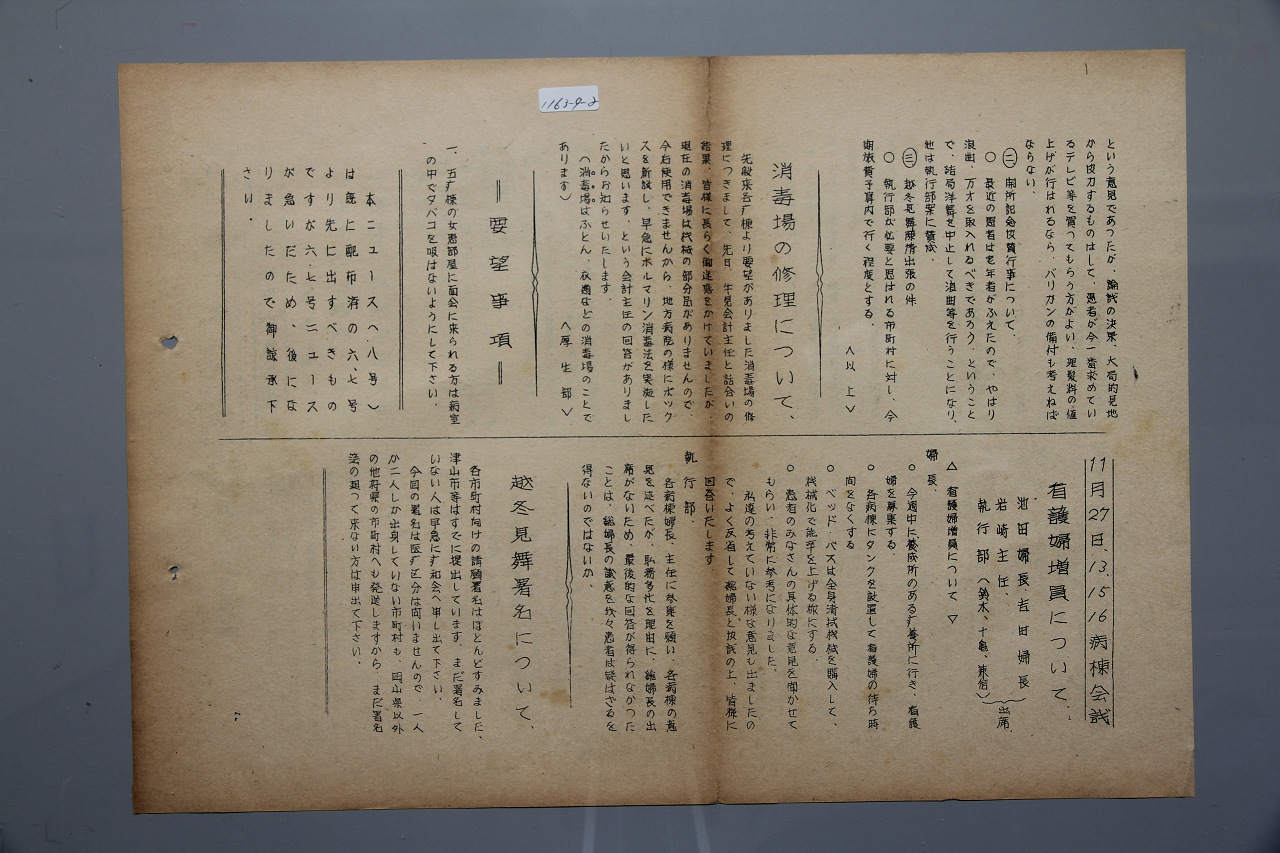 1163-9-2
という意見であつたが、論議の決果、大局的見地
から協力するものはして、患者が今一番求めてい
るテレビ等を買つてもらう方がよい、理髪料の値
上げが行はれるなら、バリカンの備付も考えねば
ならない。
㊁ 開所記念祝賀行事について、
○ 最近の患者は老年者がふえたので、やはり
浪曲、万才を取入れるべきであろう、ということ
で、結局洋舞を中止して浪曲等を行うことになり、
他は執行部案に賛成。
㊂ 越冬見舞陳情出張の件
○ 執行部が必要と思はれる市町村に対し、今
期旅費予算内で行く程度とする。
〈以上〉
消毒場の修理について、
先般来各疒棟より要望がありました消毒場の修
理につきまして、先日、牛見会計主任と話合いの
結果、皆様に長らく御迷惑をかけていましたが、
現在の消毒場は機械の部分品がありませんので、
今后使用できませんから、地方病院の様にボック
スを新設し、早急にホルマリン消毒法を実施した
いと思います、という会計主任の回答がありまし
たからお知らせいたします。
(消毒場はふとん、衣類などの消毒場のことで
あります)
〈厚生部〉
=要望事項=
一、五疒棟の女患部屋に面会に来られる方は病室
の中でタバコを吸はないようにして下さい。
本ニュースへ八号〉
は既に配布済の六、七号
より先に出すべきもの
ですが六、七号ニュース
が急いだため、後にな
りましたので御諒承下
さい。
11月27日、13、15、16病棟会議
看護婦増員について、
池田婦長、吉田婦長
岩崎主任、
執行部(鈴木、十亀、兼宿)
出席
△ 看護婦増員について ▽
婦長、
○ 今週中に養成所のある疒養所に行き、看護
婦を募集する。
○ 各病棟にタンクを設置して看護婦の待ち時
間をなくする
○ ベッド・バスは全身清拭機械を購入して、
機械化で能率を上げる様にする。
○ 患者のみなさんの具体的な意見を聞かせて
もらい、非常に参考になりました、
私達の考えていない様な意見も出ましたの
で、よく反省して総婦長と協議の上、皆様に
回答いたします。
執行部、
各病棟婦長、主任に参集を願い、各病棟の意
見を述べたが、私務多忙を理由に、総婦長の出
席がないため、最後的な回答が得られなかつた
ことは、総婦長の誠意を我々患者は疑はざるを
得ないのではないか、
越冬見舞署名について、
各市町村向けの請願署名はほとんどすみました、
津山市等はすでに提出しています、まだ署名して
いない人は早急に疒和会へ申し出て下さい。
今回の署名は医疒区分は問いませんので、一人
か二人しか出身していない市町村も、岡山県以外
の他府県の市町村へも発送しますから、まだ署名
簿の廻つて来ない方は申出て下さい。